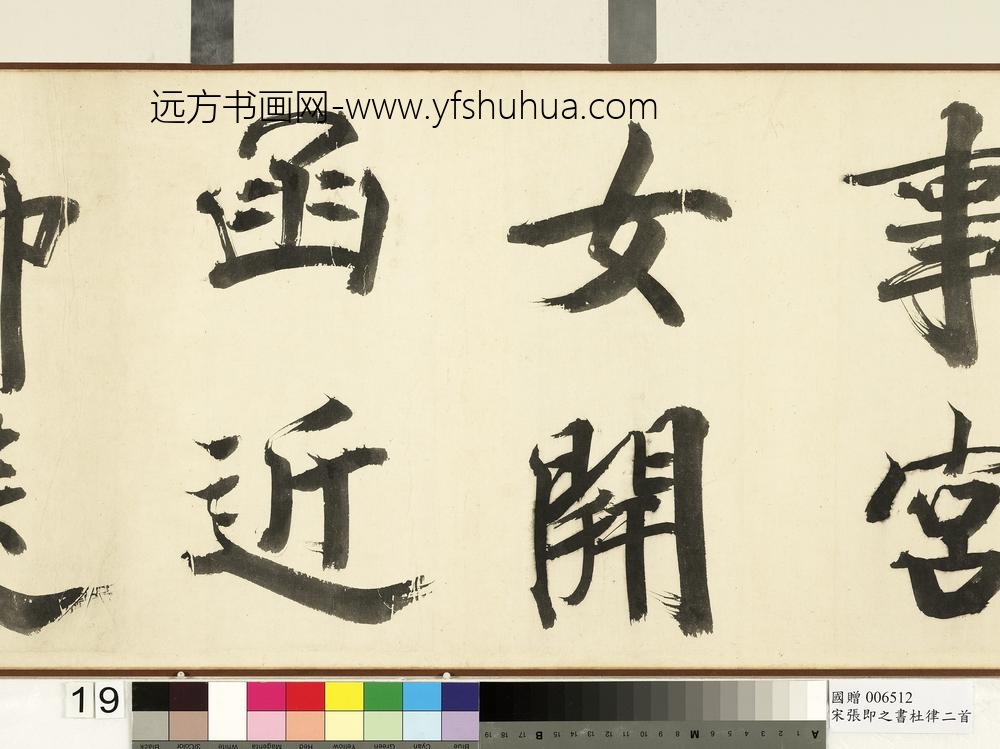 远方书画网-www.yfshuhua.com
事宮
女開
函近
19
Blue Cyan Green Yellow Red Magenta White 3/Color Black
A 1 2 3 4 5 6 M 8 9 10 11 12 13 14 15 B 17 18 19
國贈 006512
宋張即之書杜律二首